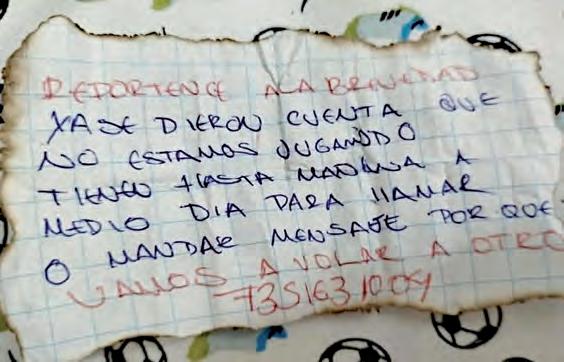 REPORTENCE A LA BREVEDAD
YA SE DIERON CUENTA QUE
NO ESTAMOS JUGANDO
TIENEN HASTA MAÑANA A
MEDIO DIA PARA LLAMAR
O MANDAR MENSAJE POR QUE
VAMOS A VOLAR A OTRO
7351631004